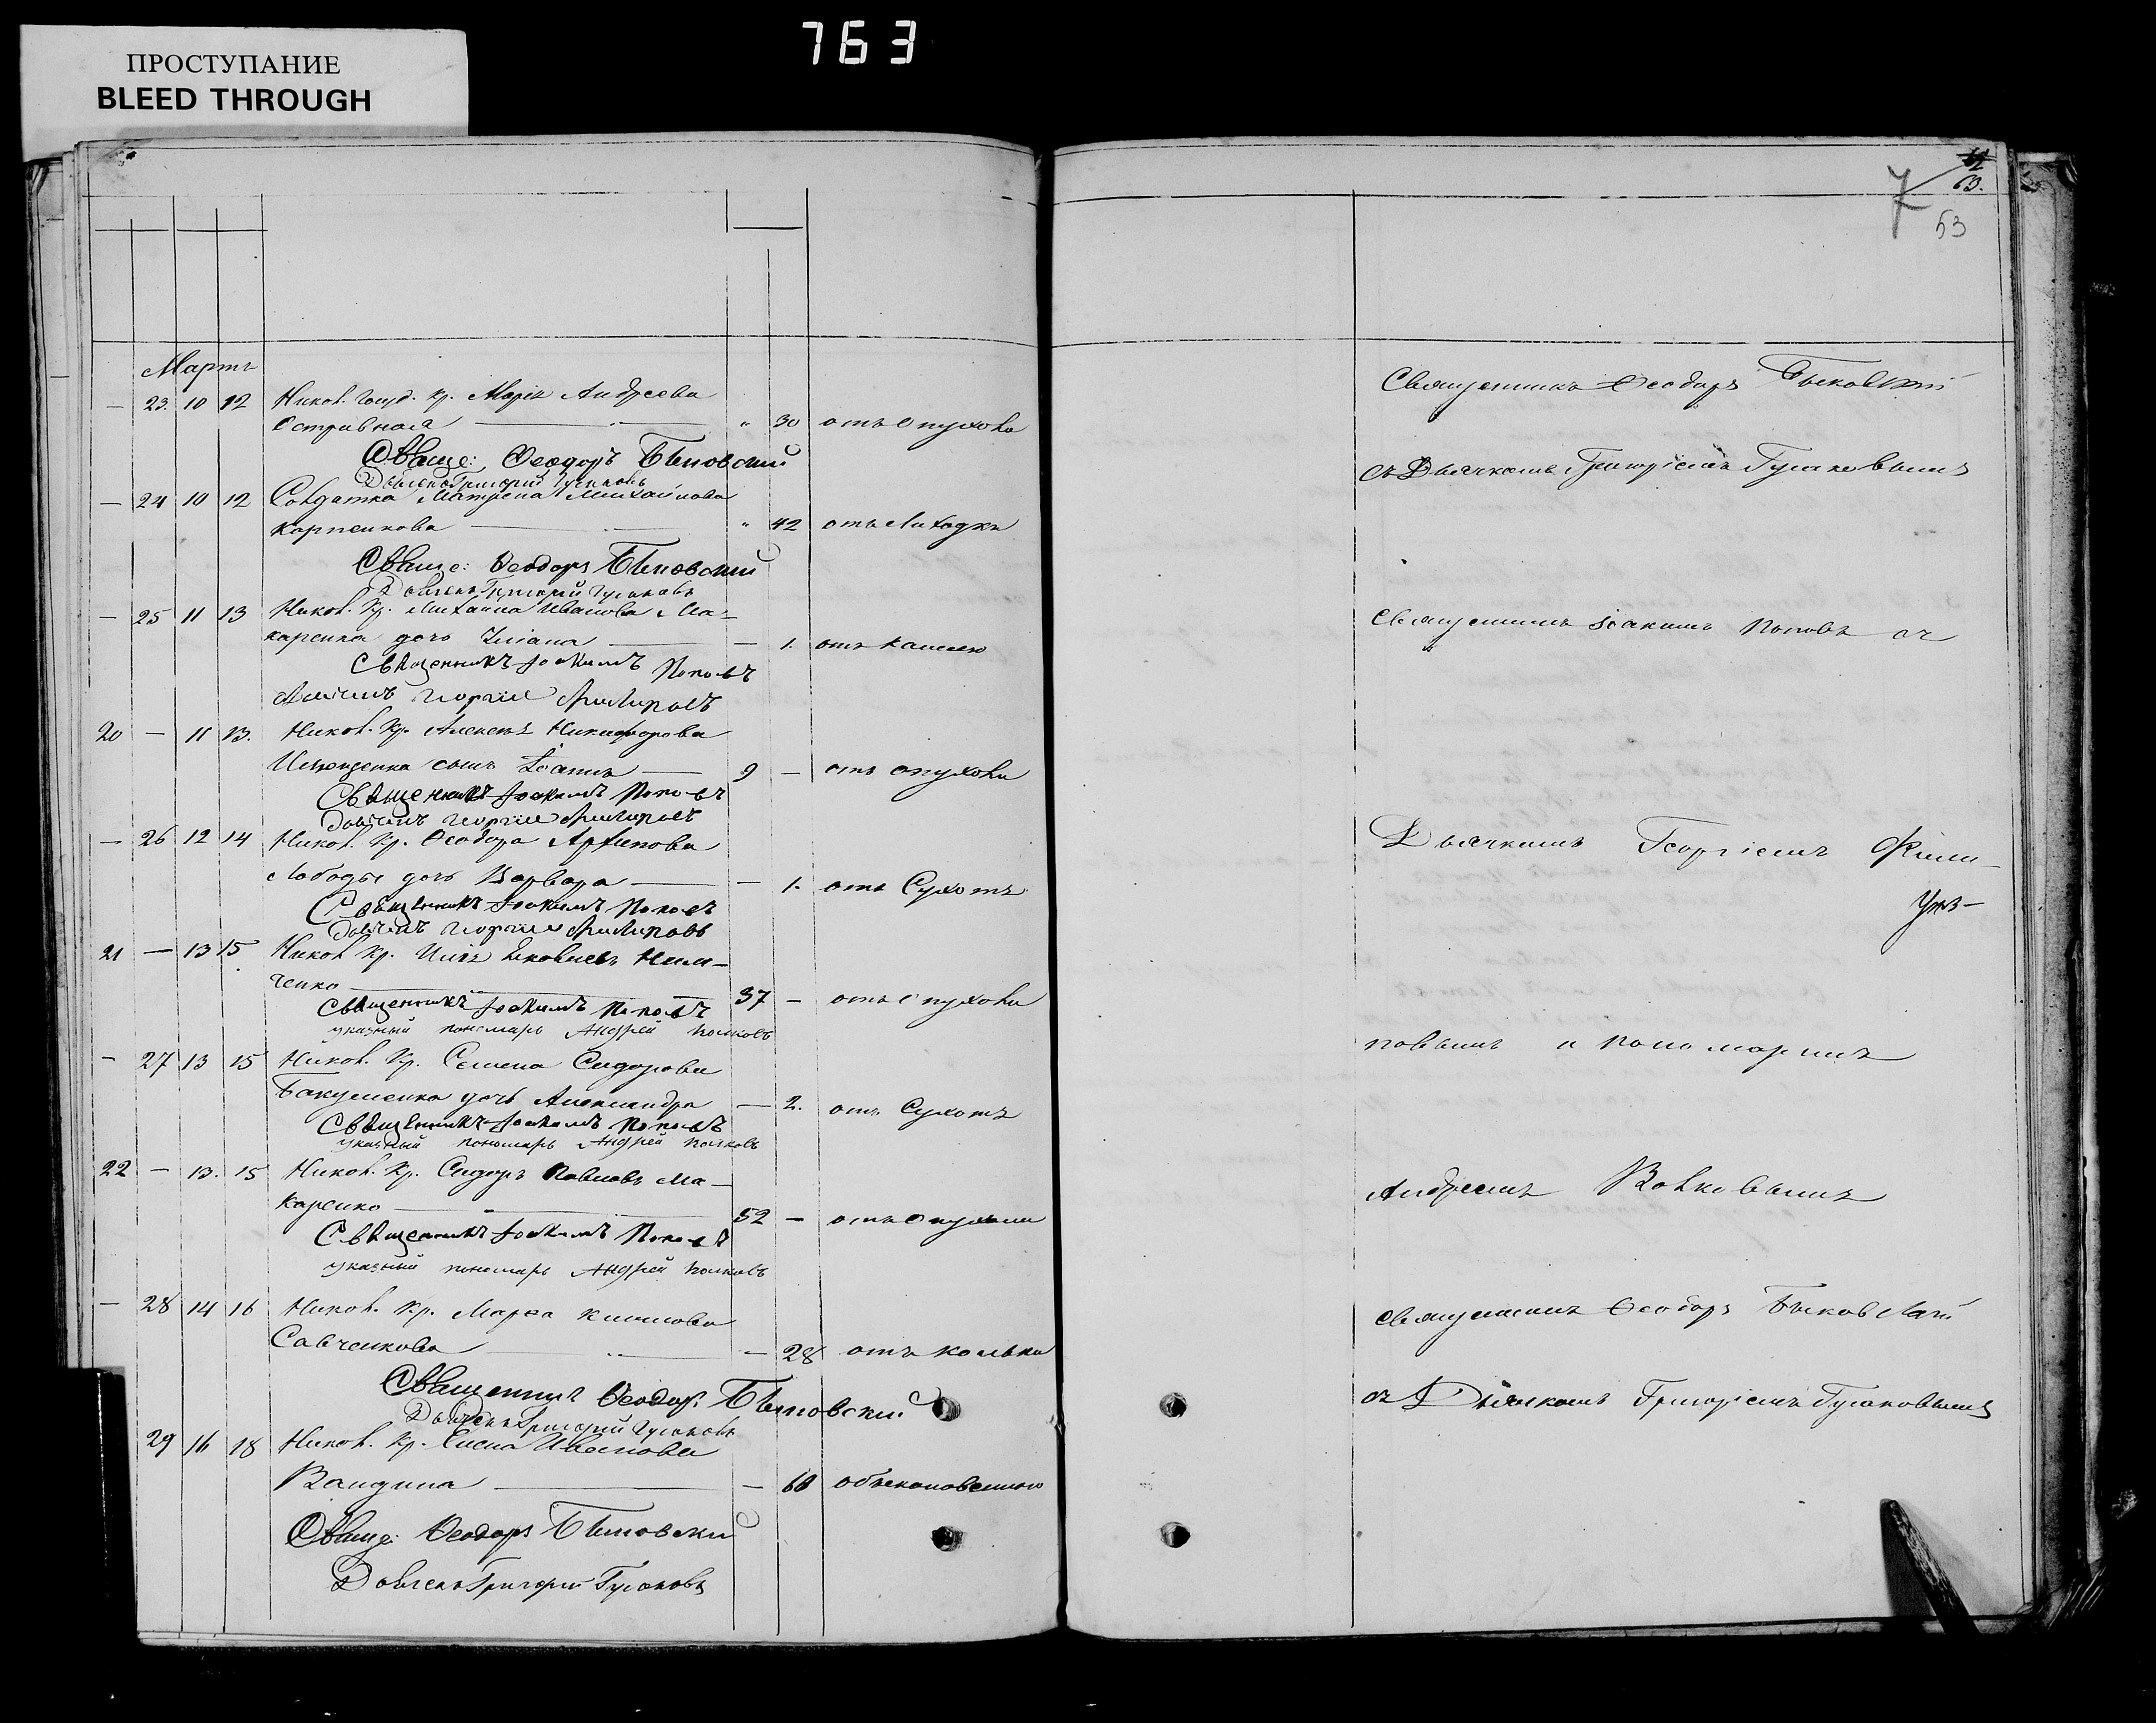 763
ПРОСТУПАНИЕ
BLEED THROUGH
63.
7
63
Мартъ
— 23. 10 12 Никол. Госуд. кр. Марія Андреева
Островная — " 30 отъ опухоли
Свяще: Ѳеодоръ Быковскій
Дьячекъ Григорій Гусаковъ
— 24 10 12 Солдатка Матрена Михайлова
Карпенкова — " 42 отъ лиходки
Свяще: Ѳеодоръ Быковскій
Дьячекъ Григорій Гусаковъ
— 25 11 13 Никол. Кр. Михаила Иванова Ма-
каренка дочь — 1. отъ кашлю
Священникъ Іоакимъ Поповъ
20 — 11 13. Никол. Кр. Алексея Никифорова
сынъ Іоаннъ — 9 — отъ опухоли
Священникъ Іоакимъ Поповъ
— 26 12 14 Никол. Кр. Ѳеодора Архипова
Лободы дочь Варвара — — 1. отъ Сухотъ
Священникъ Іоакимъ Поповъ
21 — 13 15 Никол Кр. Илія Яковлевъ
ченко — 37 — отъ опухоли
Священникъ Іоакимъ Поповъ
указный пономарь Андрей Волковъ
— 27 13 15 Никол. Кр. Семена Сидорова
Бакуменка дочь Александра — 2. отъ Сухотъ
Священникъ Іоакимъ Поповъ
указный пономарь Андрей Волковъ
22 — 13. 15 Никол. Кр. Сидоръ Павловъ Ма-
каренко — 52 — отъ опухоли
Священникъ Іоакимъ Поповъ
указный пономарь Андрей Волковъ
— 28 14 16 Никол. Кр. Марѳа Климова
Савченкова — — 28 отъ кольки
Священникъ Ѳеодоръ Быковскій
Дьячекъ Григорій Гусаковъ
29 16 18 Никол. Кр. Елена Иванова
— 60 обыкновенною
Свяще: Ѳеодоръ Быковскій
Дьячекъ Григорій Гусаковъ
Священникъ Ѳеодоръ Быковскій
съ Дьячкомъ Григоріемъ Гусаковымъ
Священникъ Іоакимъ Поповъ съ
Дьячкомъ Георгіемъ Фили-
повымъ и пономаремъ
Андреемъ Волковымъ
Священникъ Ѳеодоръ Быковскій
съ Дьячкомъ Григоріемъ Гусаковымъ